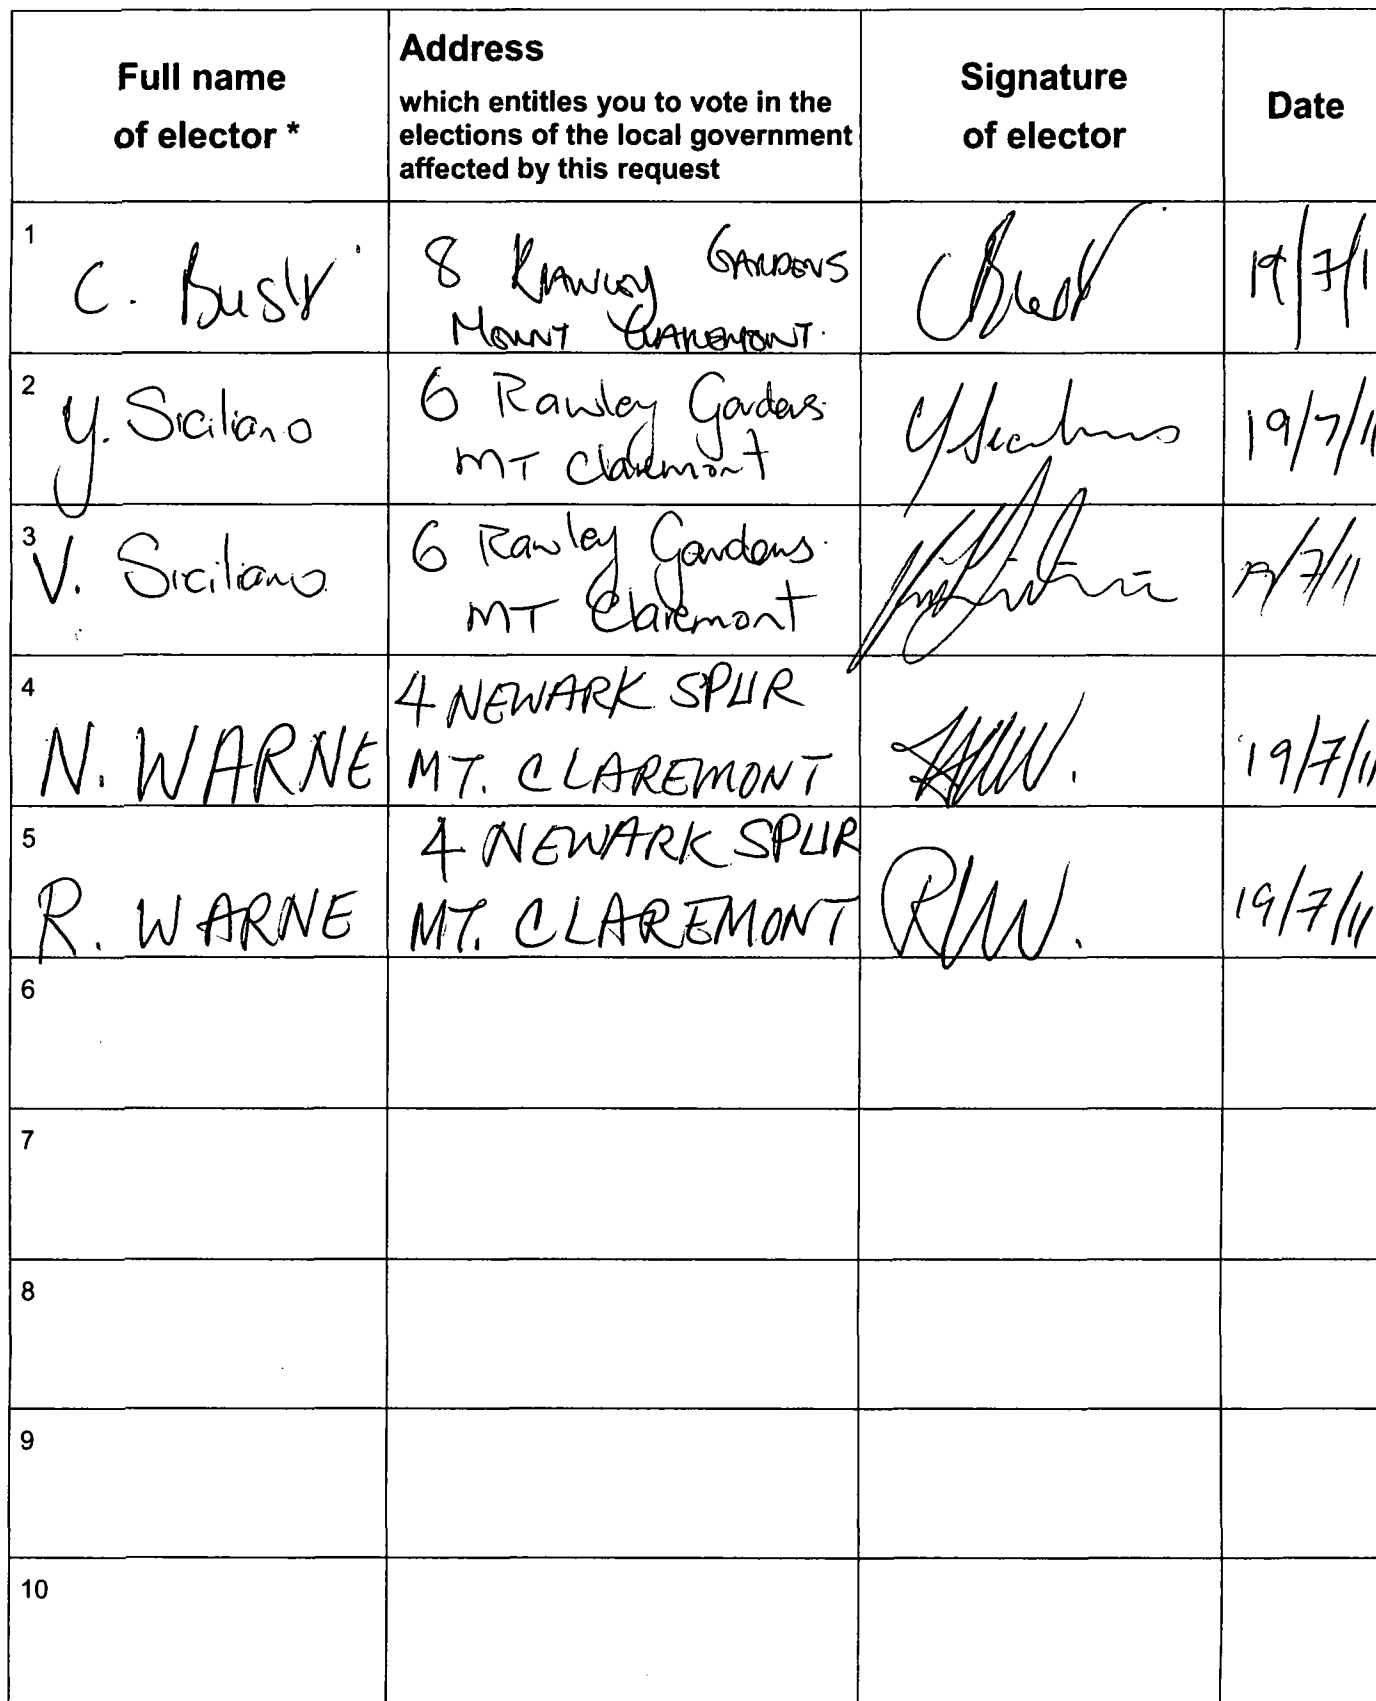 Full name
of elector *
Address
which entitles you to vote in the
elections of the local government
affected by this request
Signature
of elector
Date
1
C.
8 Rawley Gardens
Mount Claremont.
19/7/1
2
Y. Siciliano
6 Rawley Gardens
MT Claremont
19/7/11
3
V. Siciliano
6 Rawley Gardens
MT Claremont
19/7/11
4
N. WARNE
4 NEWARK SPUR
MT. CLAREMONT
19/7/11
5
R. WARNE
4 NEWARK SPUR
MT. CLAREMONT
RW.
19/7/11
6
7
8
9
10